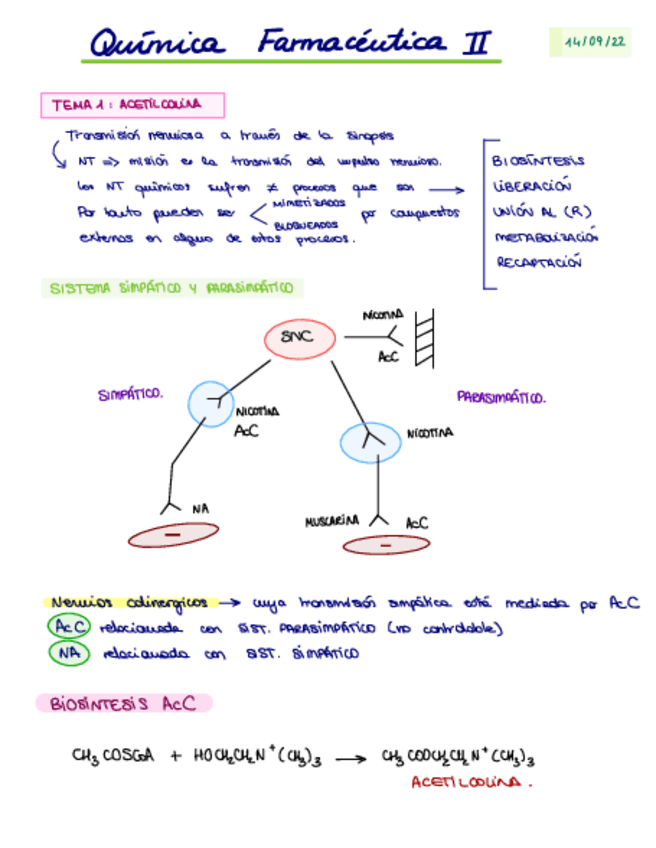 Química Farmacéutica II
14/09/22
TEMA 1: ACETILCOLINA
Transmisión nerviosa a través de la sinapsis
NT => misión es la transmisión del impulso nervioso.
Los NT químicos sufren ≠ procesos que son →
Por tanto pueden ser < MIMETIZADOS
BLOQUEADOS
por compuestos
externos en alguno de estos procesos.
BIOSÍNTESIS
LIBERACIÓN
UNIÓN AL (R)
METABOLIZACIÓN
RECAPTACIÓN
SISTEMA SIMPÁTICO Y PARASIMPÁTICO
SNC
NICOTINA
AcC
SIMPÁTICO.
PARASIMPÁTICO.
NICOTINA
AcC
NICOTINA
NA
MUSCARINA
AcC
Nervios colinergicos → cuya transmisión simpática está mediada por AcC
AcC relacionada con SIST. PARASIMPÁTICO (no controlable)
NA relacionada con SIST. SIMPÁTICO
BIOSÍNTESIS AcC
CH₃COSCoA + HOCH₂CH₂N⁺(CH₃)₃ → CH₃COOCH₂CH₂N⁺(CH₃)₃
ACETILCOLINA.